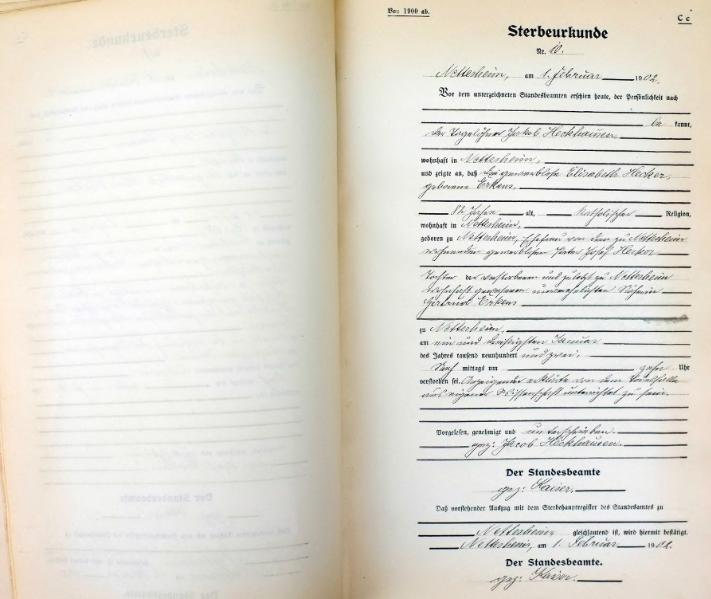 Von 1900 ab.
C c
Sterbeurkunde
Nr. 10.
Nettersheim, am 1. Februar 1902.
Vor dem unterzeichneten Standesbeamten erschien heute, der Persönlichkeit nach
be kannt,
der Tagelöhner Jakob Heckhausen
wohnhaft in Nettersheim,
und zeigte an, daß die gewerblose Elisabeth Hecker,
geborene Erkens
82 Jahre alt, katholischer Religion,
wohnhaft in Nettersheim,
geboren zu Nettersheim, Ehefrau von dem zu Nettersheim
wohnenden gewerblosen Peter Josef Hecker
Tochter der verstorbenen und zuletzt zu Nettersheim
wohnhaft gewesenen unverehelichten
Gertrud Erkens
zu Nettersheim,
am ein und dreißigsten Januar
des Jahres tausend neunhundert und zwei,
mittags um zehn Uhr
verstorben sei. Anzeigender erklärte von dem Sterbfalle
aus eigener Wissenschaft unterrichtet zu sein.
Vorgelesen, genehmigt und unterschrieben
gez: Jacob Heckhausen.
Der Standesbeamte
gez: Kaiser.
Daß vorstehender Auszug mit dem Sterbehauptregister des Standesamtes zu
Nettersheim gleichlautend ist, wird hiermit bestätigt.
Nettersheim, am 1. Februar 1902.
Der Standesbeamte.
gez: Kaiser.